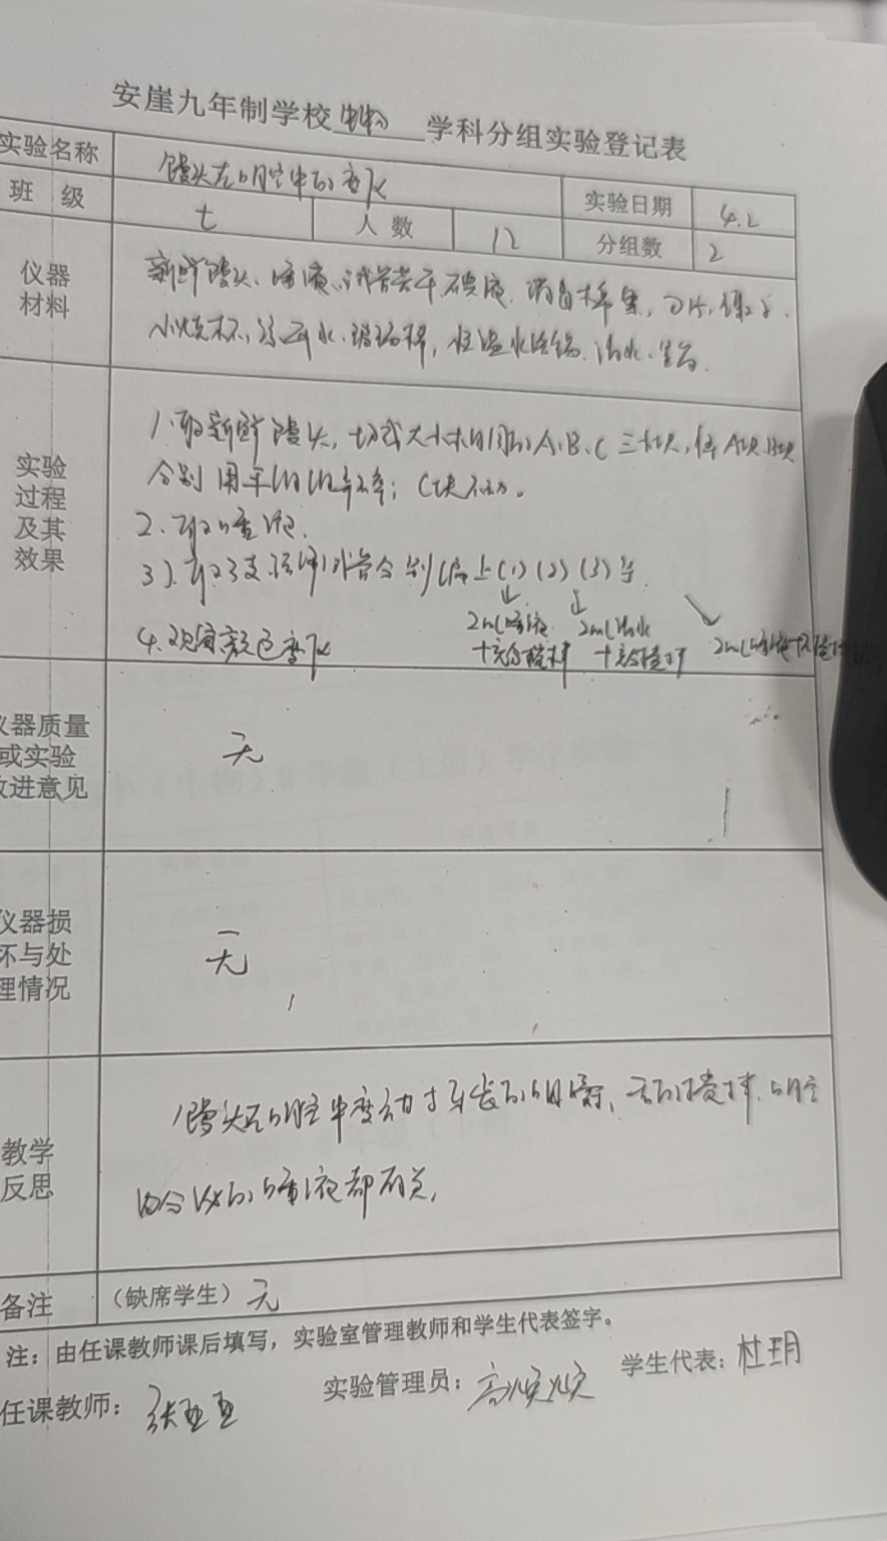 安崖九年制学校生物学科分组实验登记表
实验名称 馒头在口腔中的变化 实验日期 4.2
班 级 七 人 数 12 分组数 2
仪器
材料
新鲜馒头、唾液、试管若干 碘液、消毒棉絮,刀片,镊子、
小烧杯,凉开水、玻璃棒,恒温水浴锅、清水、
实验
过程
及其
效果
1、取新鲜馒头,切成大小相同的A、B、C三块,
2、取唾液、
3)、取3支试管分别编上(1)(2)(3)号、
2ml唾液 2ml清水
+充分搅拌 +充分搅拌
4、观察颜色变化
仪器质量
或实验
改进意见
无
仪器损
坏与处
理情况
无
教学
反思
馒头在口腔中变动与牙齿的咀嚼、舌的搅拌、口腔
内分泌的唾液都有关,
备注 (缺席学生)无
注:由任课教师课后填写,实验室管理教师和学生代表签字。
任课教师:张亚亚 实验管理员:高焕焕 学生代表:杜玥